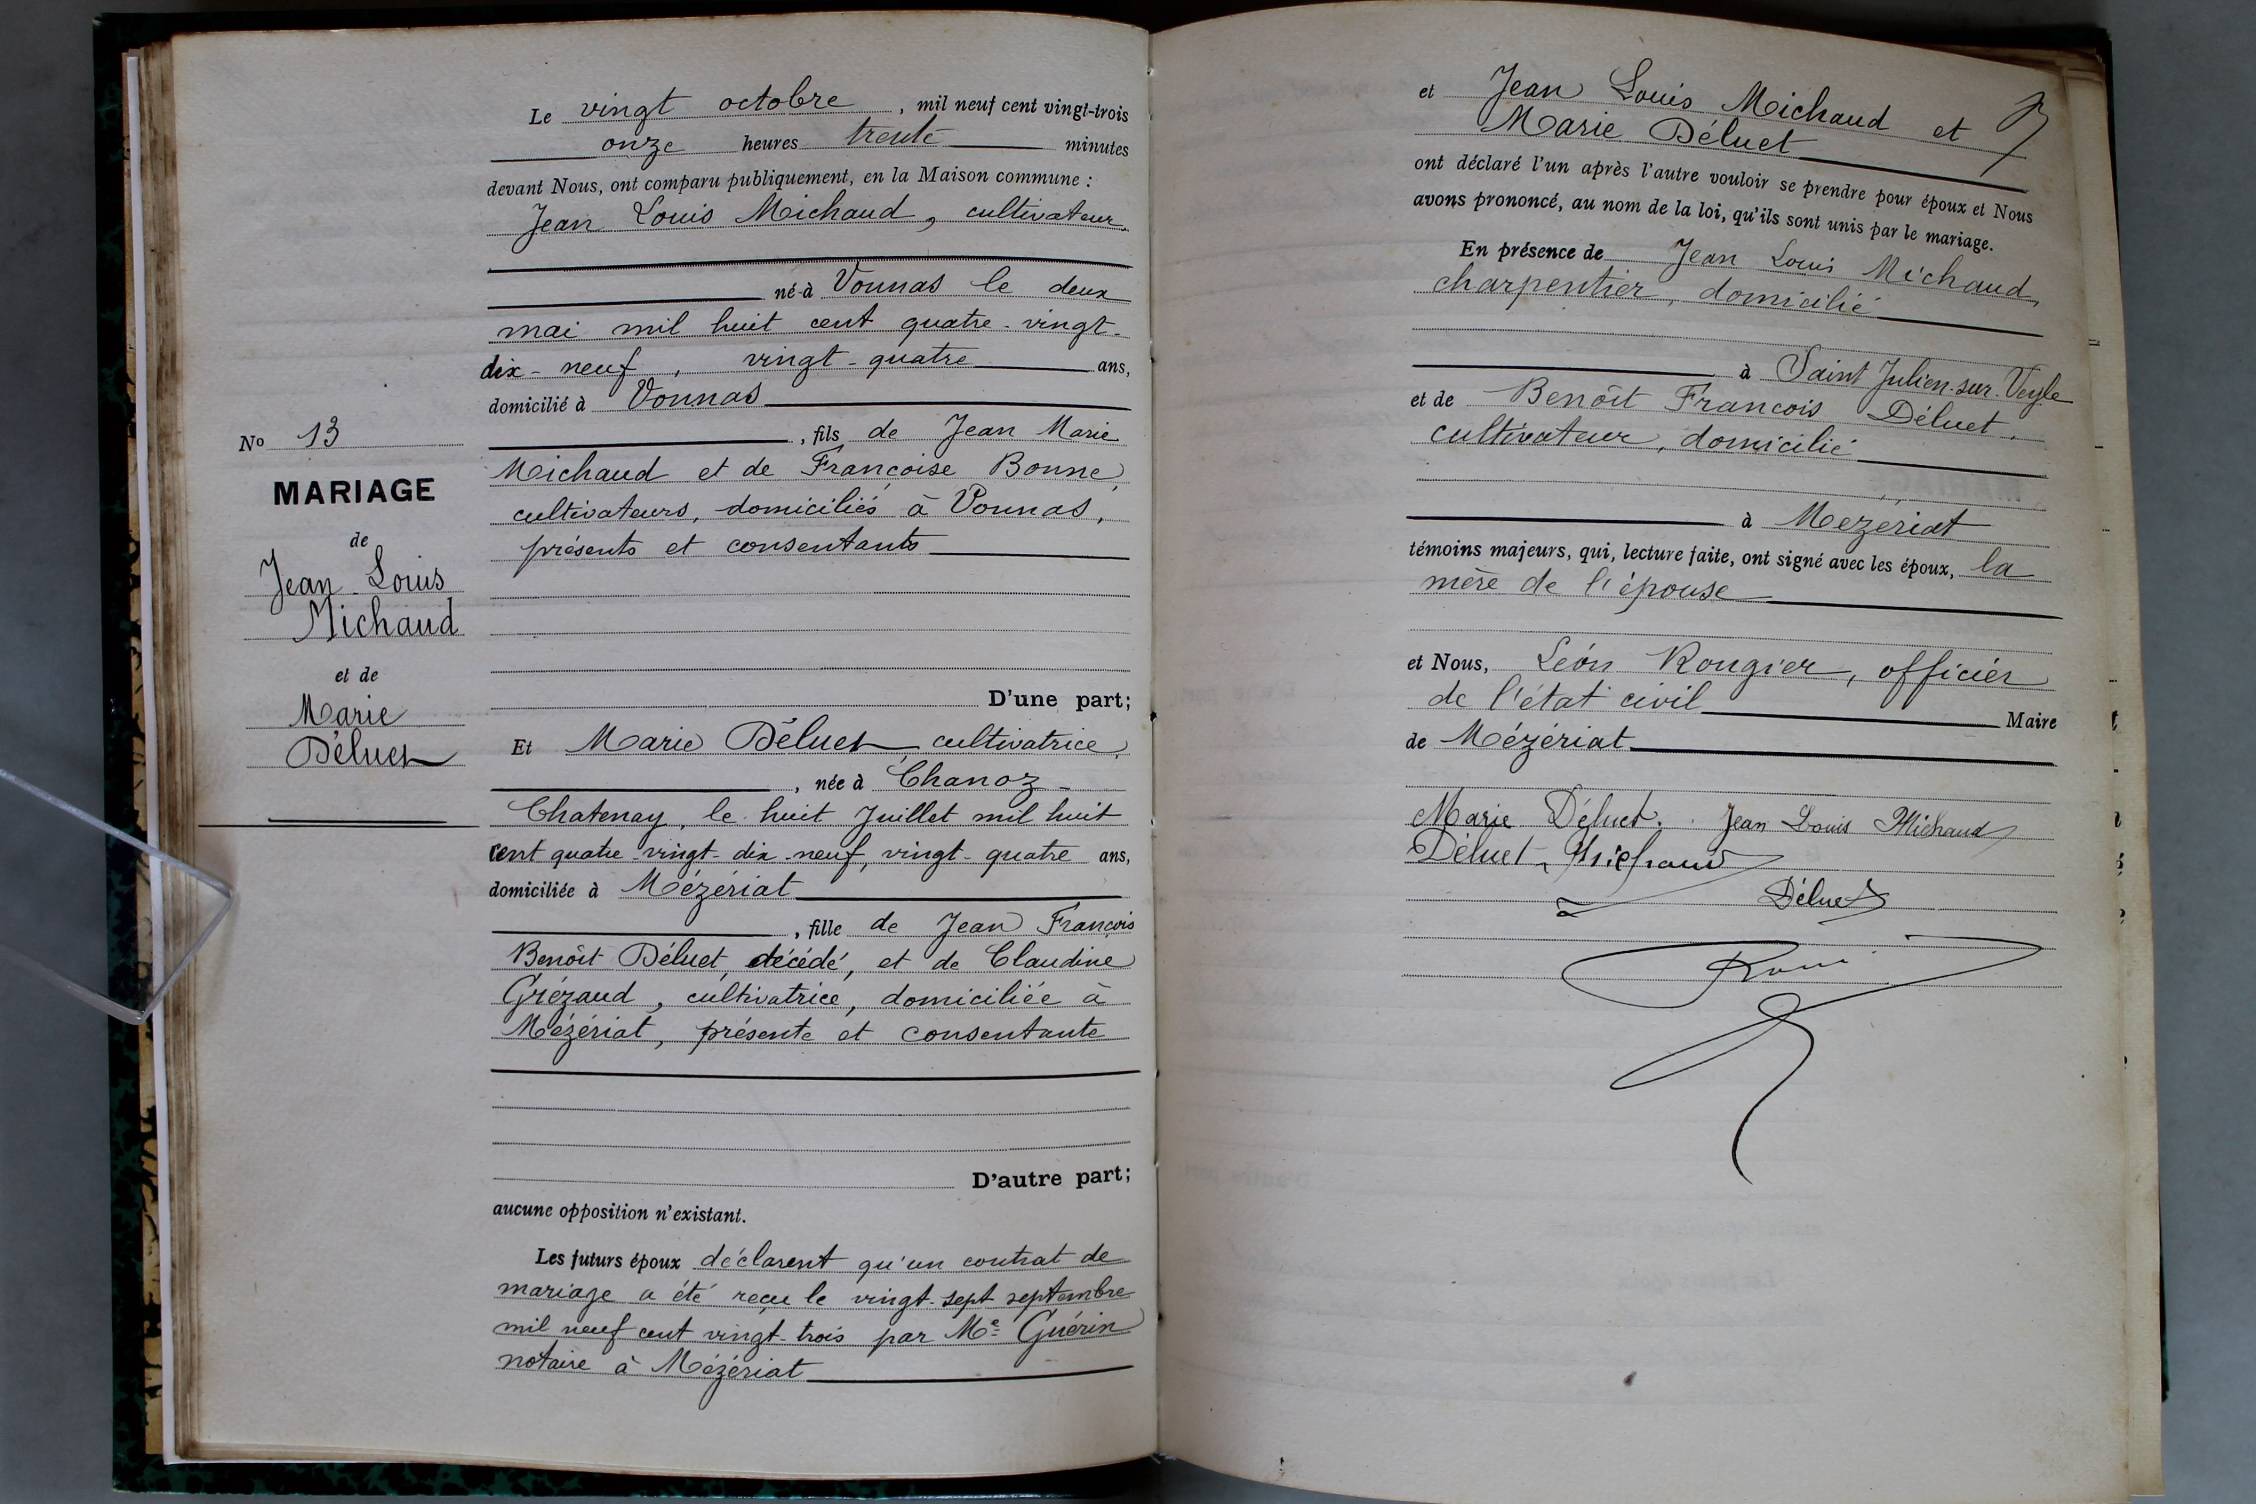 Le vingt octobre, mil neuf cent vingt-trois
onze heures trente minutes
devant Nous, ont comparu publiquement, en la Maison commune :
Jean Louis Michaud, cultivateur,
né à Vonnas le deux
mai mil huit cent quatre-vingt-
dix-neuf, vingt-quatre ans,
domicilié à Vonnas
, fils de Jean Marie
Michaud et de Françoise Bonne,
cultivateurs, domiciliés à Vonnas,
présents et consentants
D'une part;
Et Marie Déluet, cultivatrice,
, née à Chanoz-
Chatenay, le huit Juillet mil huit
cent quatre-vingt-dix-neuf, vingt-quatre ans,
domiciliée à Mézériat
, fille de Jean François
Benoît Déluet, décédé, et de Claudine
Grézaud, cultivatrice, domiciliée à
Mézériat, présente et consentante
D'autre part;
aucune opposition n'existant.
Les futurs époux déclarent qu'un contrat de
mariage a été reçu le vingt-sept septembre
mil neuf cent vingt-trois par Me Guérin
notaire à Mézériat
No 13
MARIAGE
de
Jean Louis
Michaud
et de
Marie
Déluet
et Jean Louis Michaud et
Marie Déluet
ont déclaré l'un après l'autre vouloir se prendre pour époux et Nous
avons prononcé, au nom de la loi, qu'ils sont unis par le mariage.
En présence de Jean Louis Michaud,
charpentier, domicilié
à Saint Julien-sur-Veyle
et de Benoît François Déluet,
cultivateur, domicilié
à Mézériat
témoins majeurs, qui, lecture faite, ont signé avec les époux, la
mère de l'épouse
et Nous, Léon Rougier, officier
de l'état civil Maire
de Mézériat
Marie Déluet. Jean Louis Michaud
Déluet Michaud
Déluet